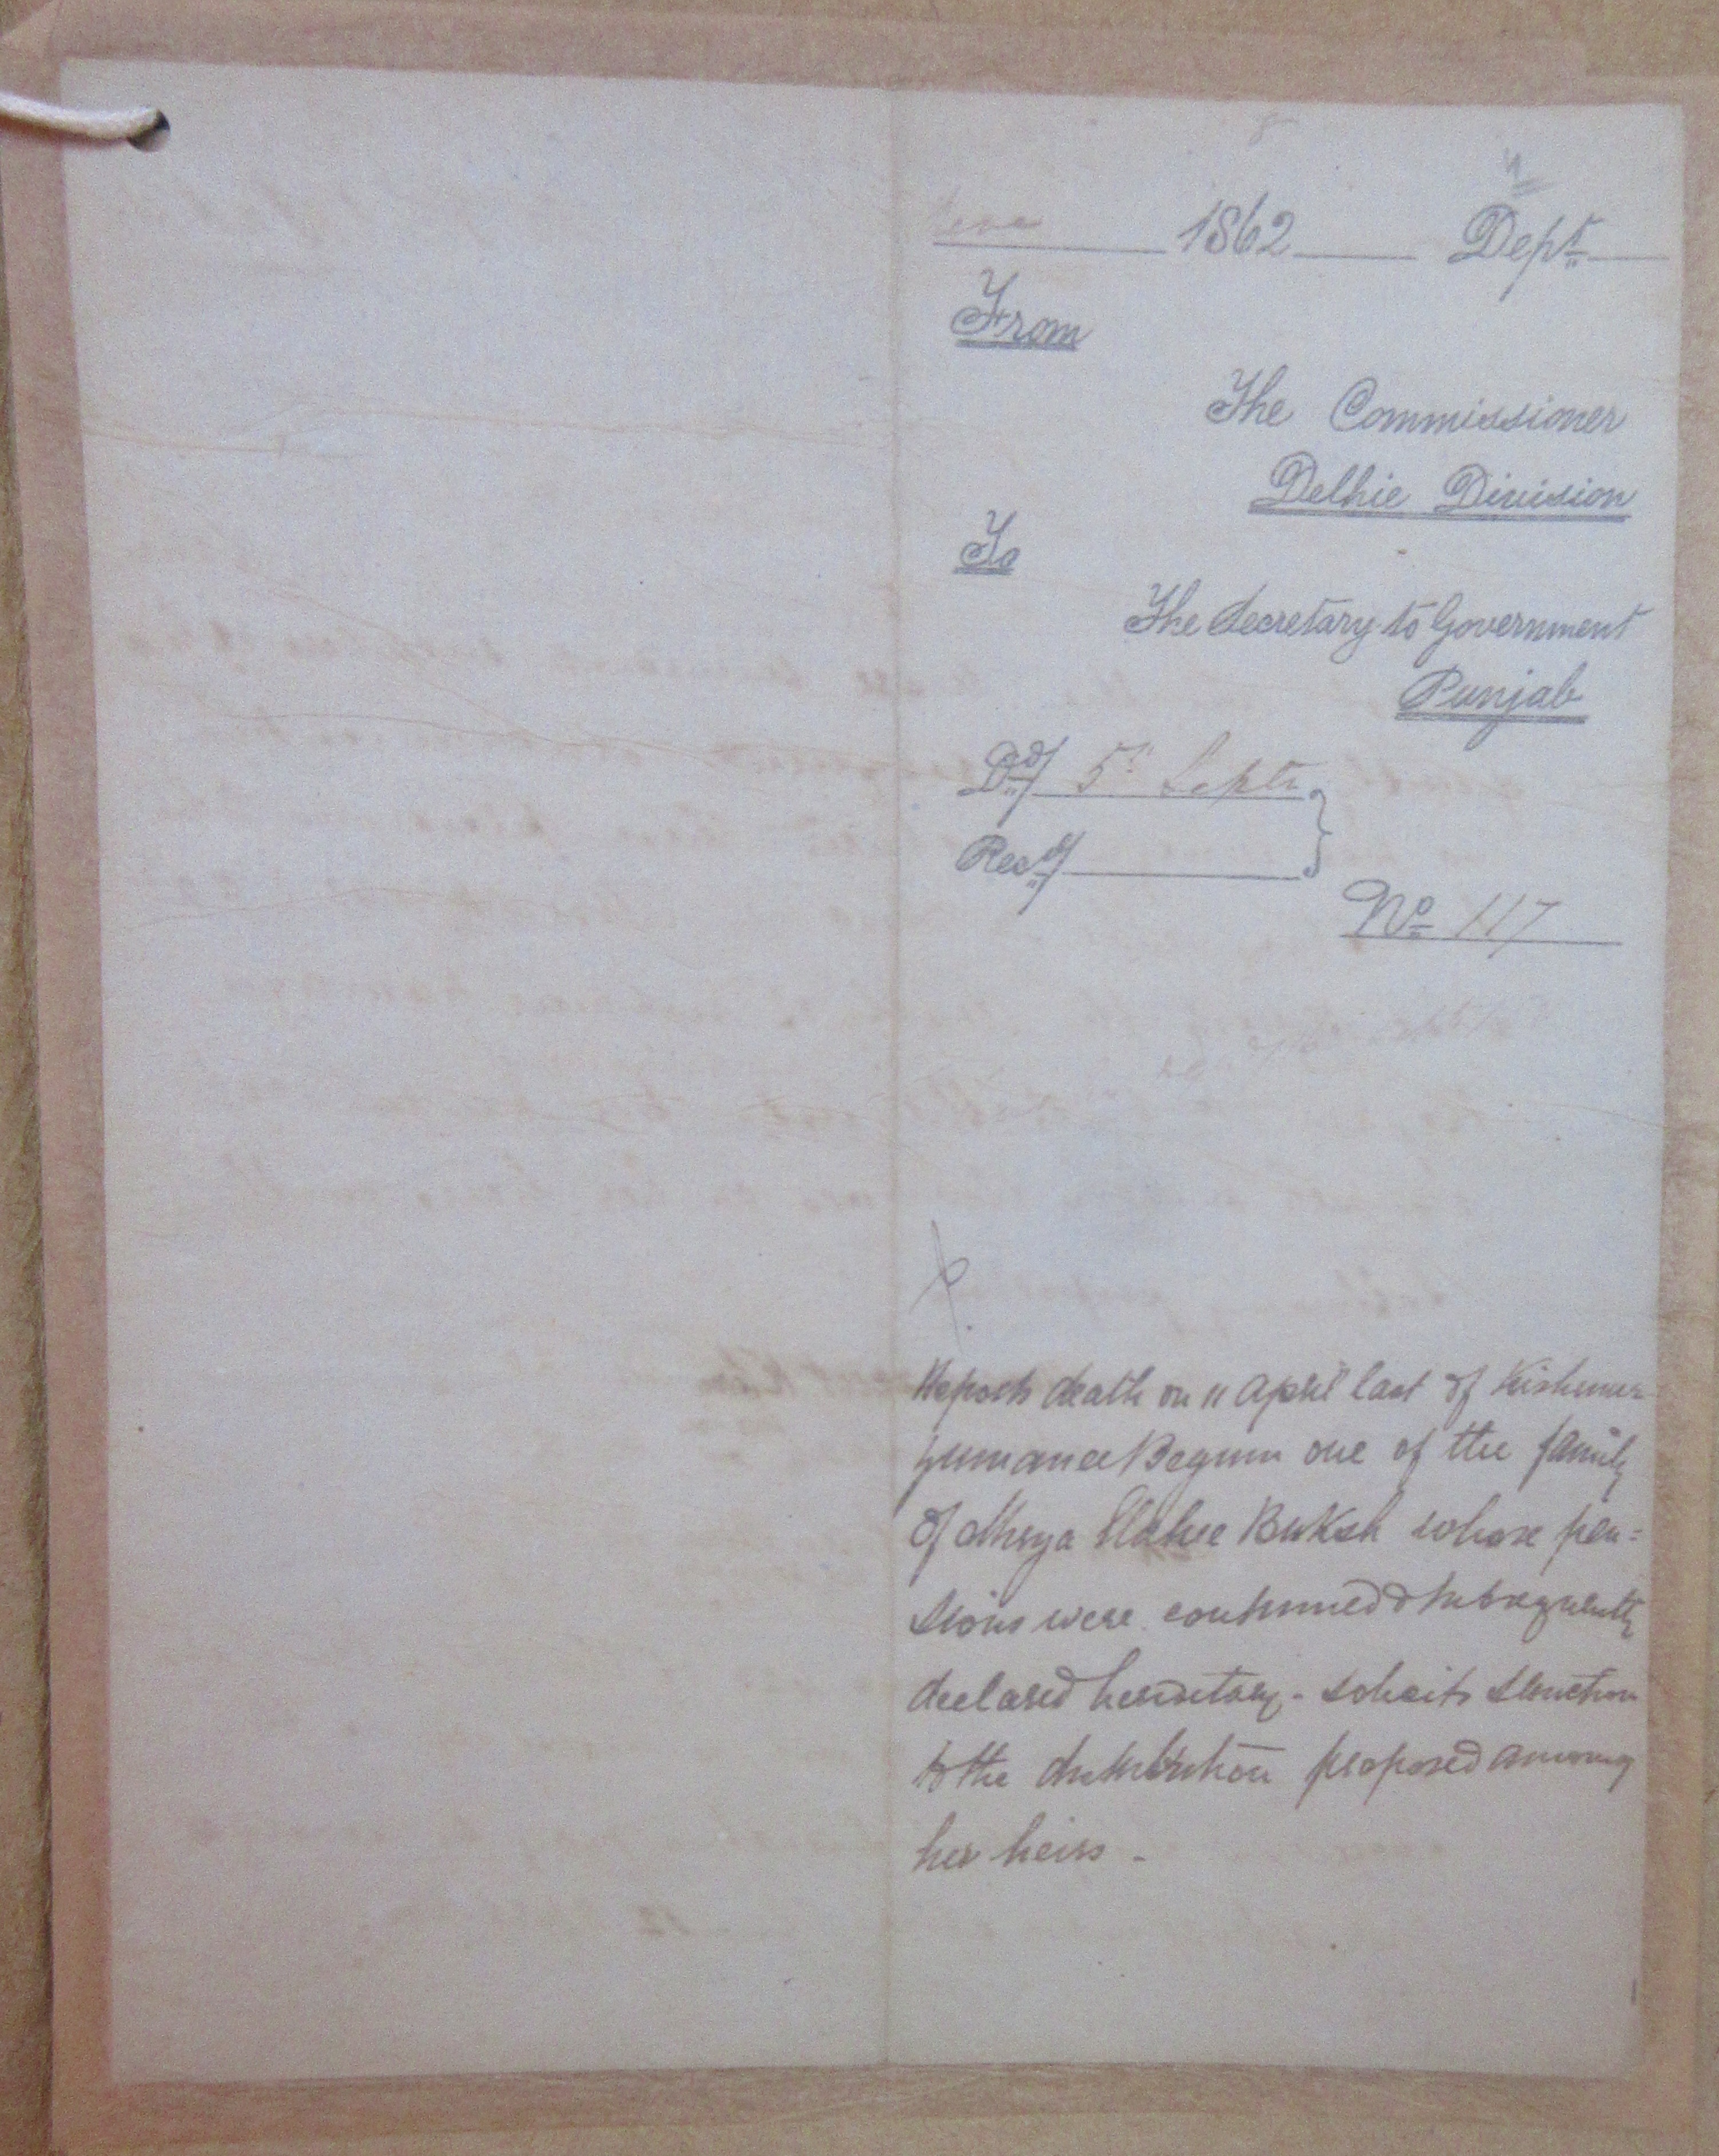 1862 Dept
From
The Commissioner
Delhie Division
To
The Secretary to Government
Punjab
Dd/ 5th Septr
Recd/
No 117
Reports death on 11 April last of Kishwur
Zumanee Begum one of the family
of Mirza Elahee Buksh whose pen=
sions were continued & subsequently
declared hereditary - solicits sanction
to the distribution proposed among
her heirs -